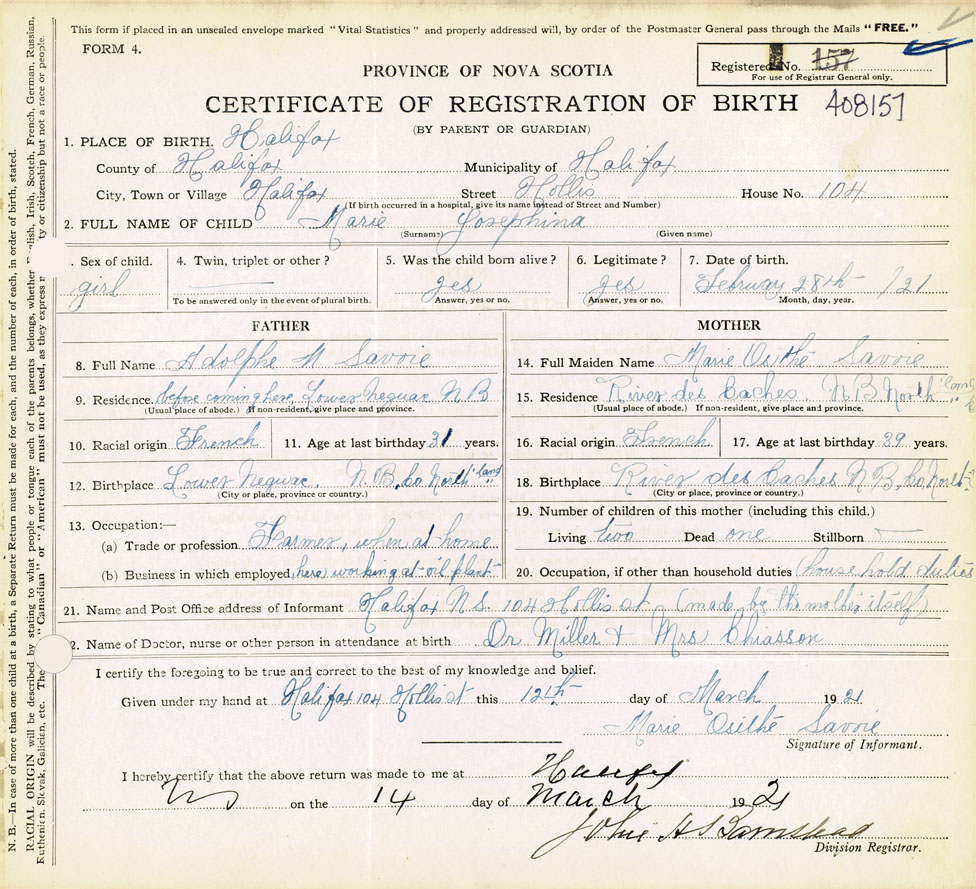 This form if placed in an unsealed envelope marked "Vital Statistics" and properly addressed will, by order of the Postmaster General pass through the Mails "FREE."
FORM 4.
Registered No. 157
For use of Registrar General only.
PROVINCE OF NOVA SCOTIA
CERTIFICATE OF REGISTRATION OF BIRTH 408157
(BY PARENT OR GUARDIAN)
1. PLACE OF BIRTH. Halifax
County of Halifax Municipality of Halifax
City, Town or Village Halifax Street Hollis House No. 104
(If birth occurred in a hospital, give its name instead of Street and Number)
2. FULL NAME OF CHILD Marie Josephina
(Surname) (Given name)
. Sex of child. 4. Twin, triplet or other? 5. Was the child born alive? 6. Legitimate? 7. Date of birth.
girl yes yes Februay 28th /21
To be answered only in the event of plural birth. Answer, yes or no. Answer, yes or no. Month, day, year.
FATHER
8. Full Name Adolphe N Savoie
9. Residence. before coming here, Lower Neguac N B
(Usual place of abode.) If non-resident, give place and province.
10. Racial origin French 11. Age at last birthday 31 years.
12. Birthplace Lower Neguac. N. B. Co North land
(City or place, province or country.)
13. Occupation:—
(a) Trade or profession Farmer, when at home
(b) Business in which employed here) working at oil plant
MOTHER
14. Full Maiden Name Marie Osithé Savoie
15. Residence River des Caches. N B North
(Usual place of abode.) If non-resident, give place and province.
16. Racial origin French 17. Age at last birthday 39 years.
18. Birthplace River des Caches N B, Co North
(City or place, province or country.)
19. Number of children of this mother (including this child.)
Living two Dead one Stillborn
20. Occupation, if other than household duties (house hold duties
21. Name and Post Office address of Informant Halifax N S. 104 Hollis st. (made by the mother itself)
2. Name of Doctor, nurse or other person in attendance at birth Dr Miller + Mrs Chiasson
I certify the foregoing to be true and correct to the best of my knowledge and belief.
Given under my hand at Halifax 104 Hollis st this 12th day of March 1921
Marie Osithé Savoie
Signature of Informant.
I hereby certify that the above return was made to me at Halifax
NS on the 14 day of March 1921
John H S
Division Registrar.
N. B.—In case of more than one child at a birth, a Separate Return must be made for each, and the number of each, in order of birth, stated.
RACIAL ORIGIN will be described by stating to what people or tongue each of the parents belongs, whether lish, Irish, Scotch, French, German, Russian,
Ruthenian, Slovak, Galician, etc. The "Canadian" or "American" must not be used, as they express ty or citizenship but not a race or people.